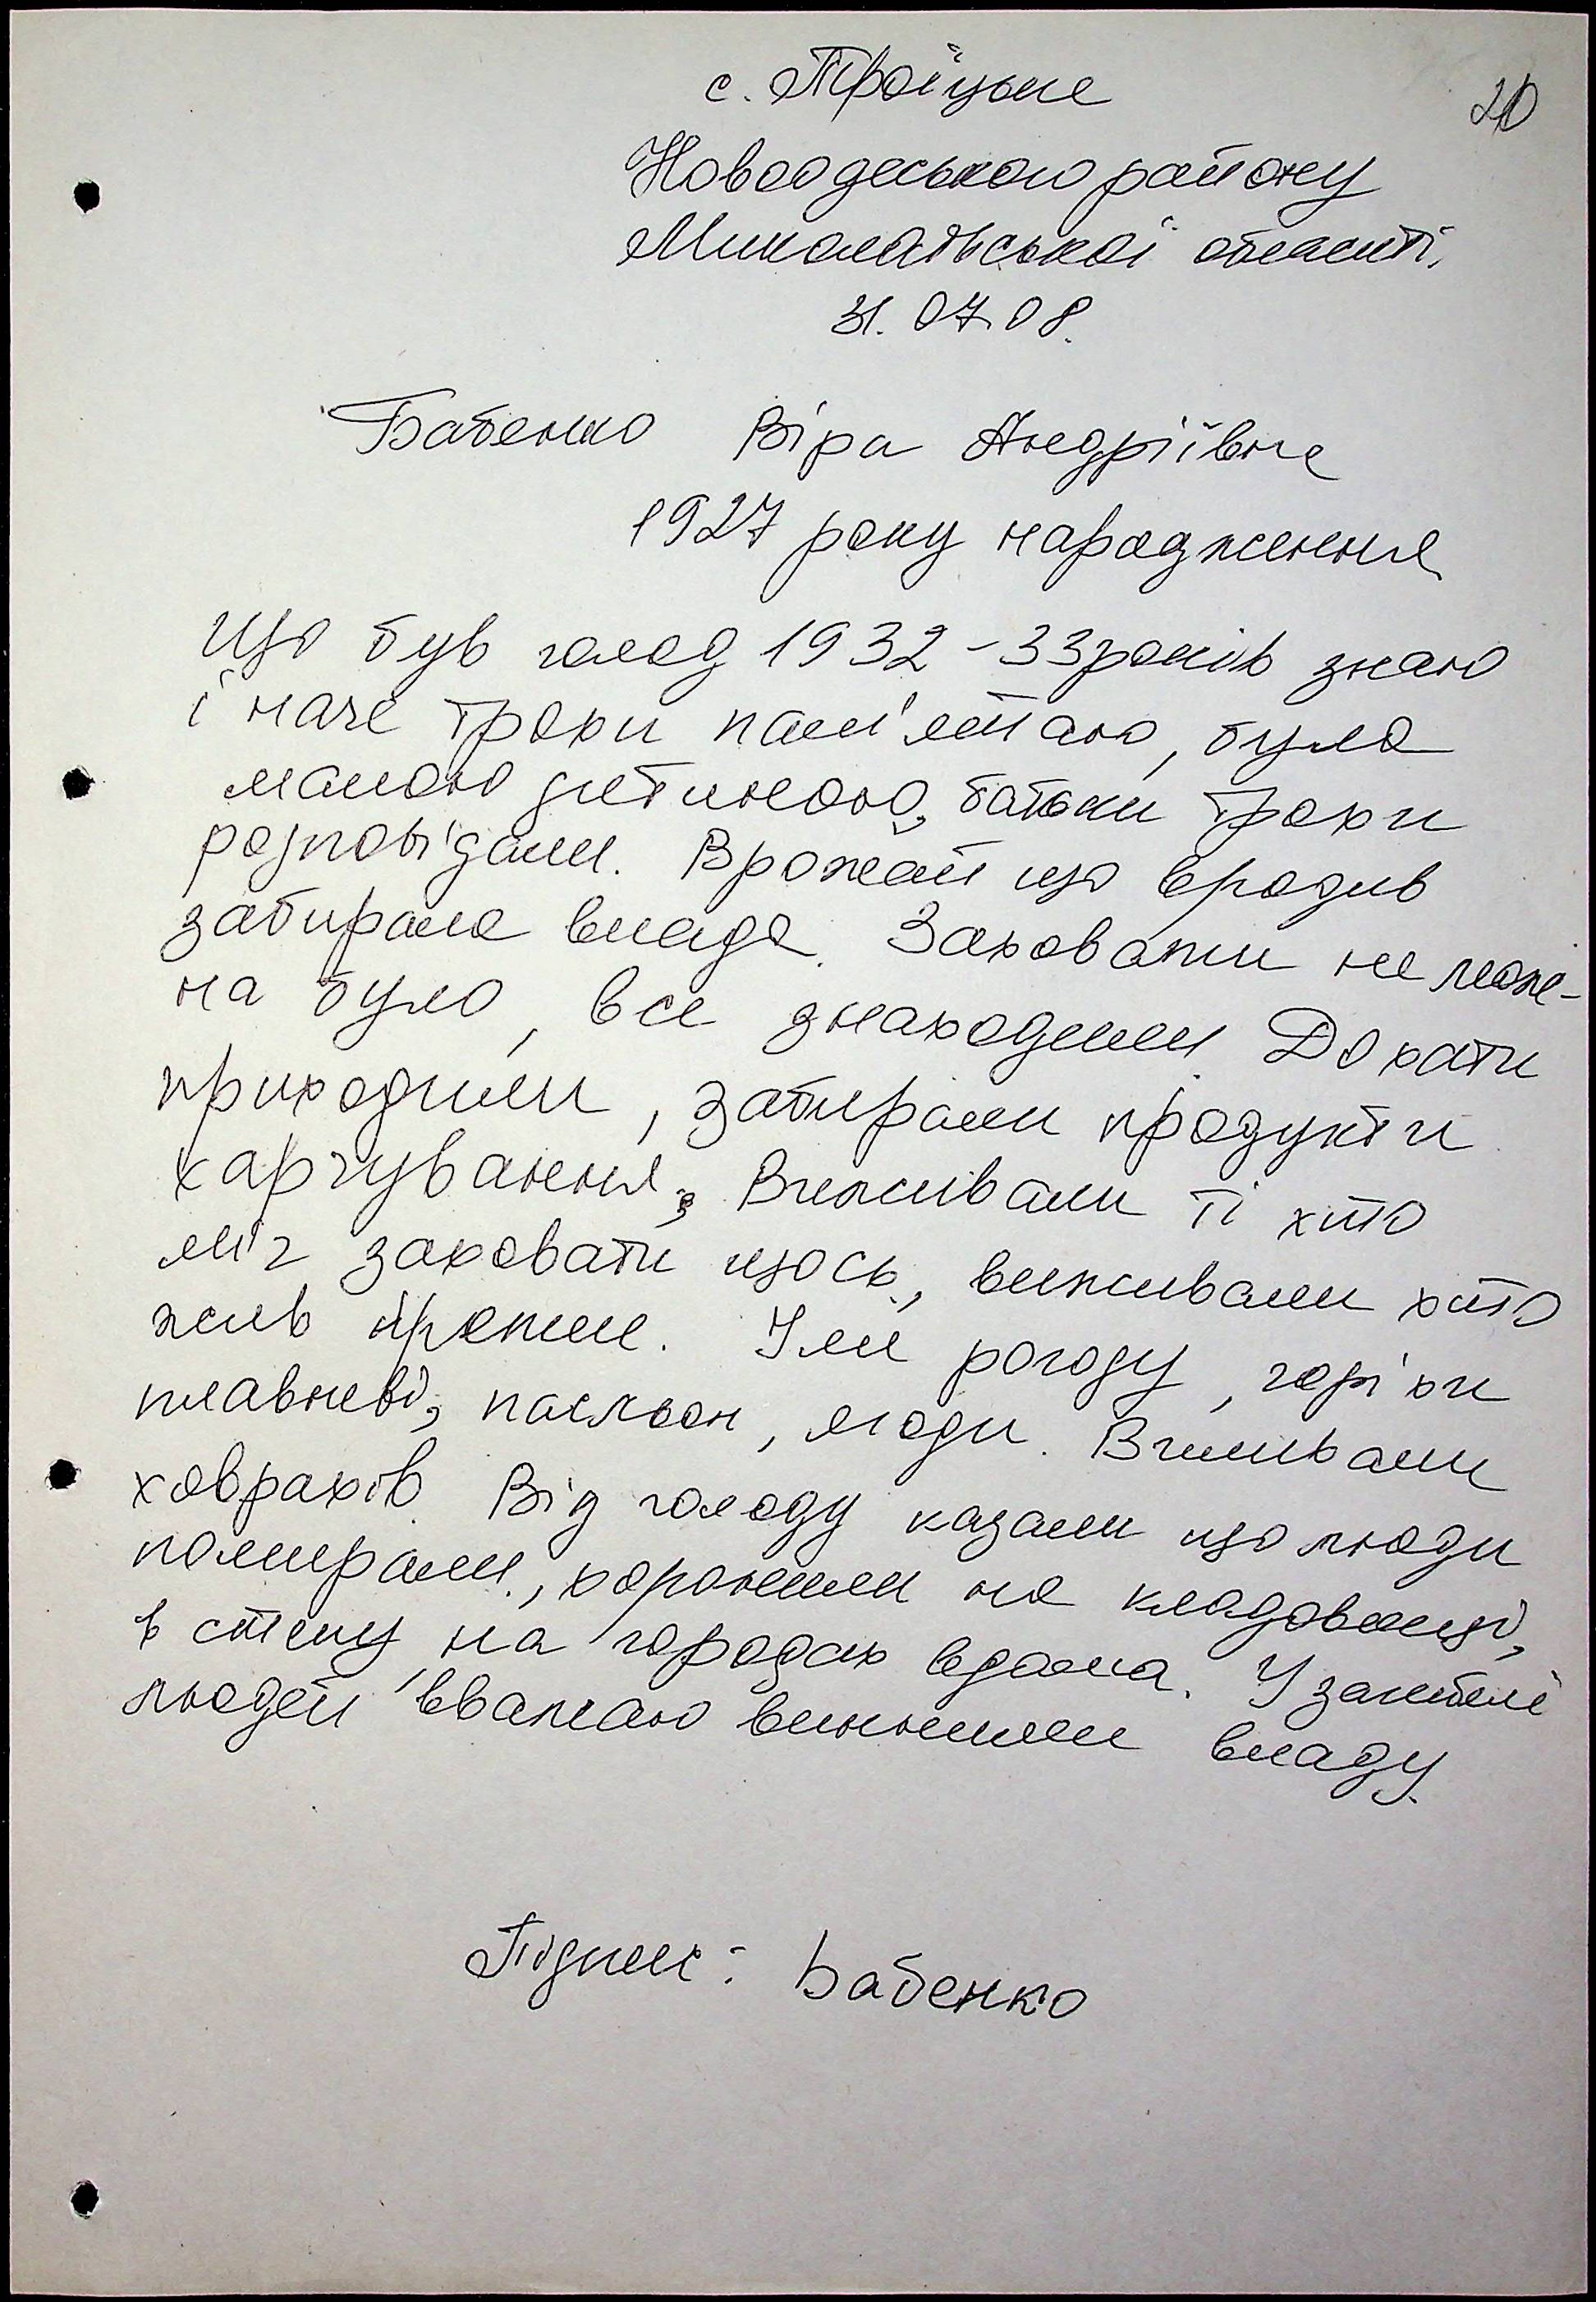 20
с. Троїцьке
Новоодеського району
Миколаївської області.
31.07.08.
Бабенко Віра Андріївна
1927 року народження
Що був голод 1932-33 років знаю
і наче трохи пам'ятаю, була
малою дитиною, батьки трохи
розповідали. Врожай що вродив
забирала влада. Заховати не мож-
на було, все знаходили. До хати
приходили, забирали продукти
харчування. Виживали ті хто
міг заховати щось, виживали хто
жив . Їли рогозу, горіхи
плавневі, пасльон, ягоди. Виливали
ховрахів. Від голоду казали що люди
помирали, хоронили на кладовищі,
в степу на городах вдома. У загибелі
людей вважаю винними владу.
Підпис: Бабенко